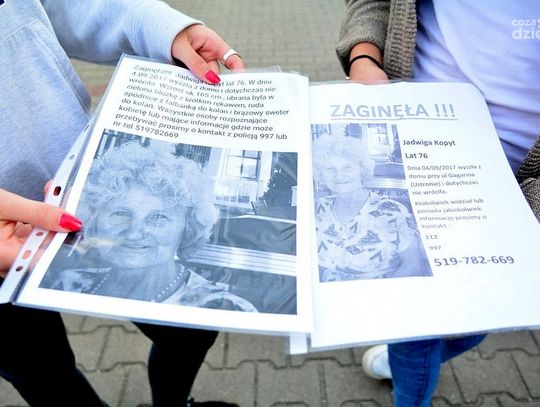 Zaginęła!!! Jadwiga Kopyt lat 76. W dniu
4.09.2017 wyszła z domu i dotychczas nie
wróciła. Wzrost ok 165 cm, ubrana była w
zieloną bluzkę z krótkim rękawem, rudą
spódnicę z falbanką do kolan i brązowy sweter
do kolan. Wszystkie osoby rozpoznające
kobietę lub mające informację gdzie może
przebywać prosimy o kontakt z policją 997 lub
nr tel 519782669
ZAGINĘŁA !!!
Jadwiga Kopyt
Lat 76
Dnia 04/09/2017 wyszła z
domu przy ul Gagarina
(Ustronie) i dotychczas
nie wróciła.
Ktokolwiek widział lub
posiada jakiekolwiek
informacje prosimy o
kontakt :
112
997
519-782-669
coza
dzień